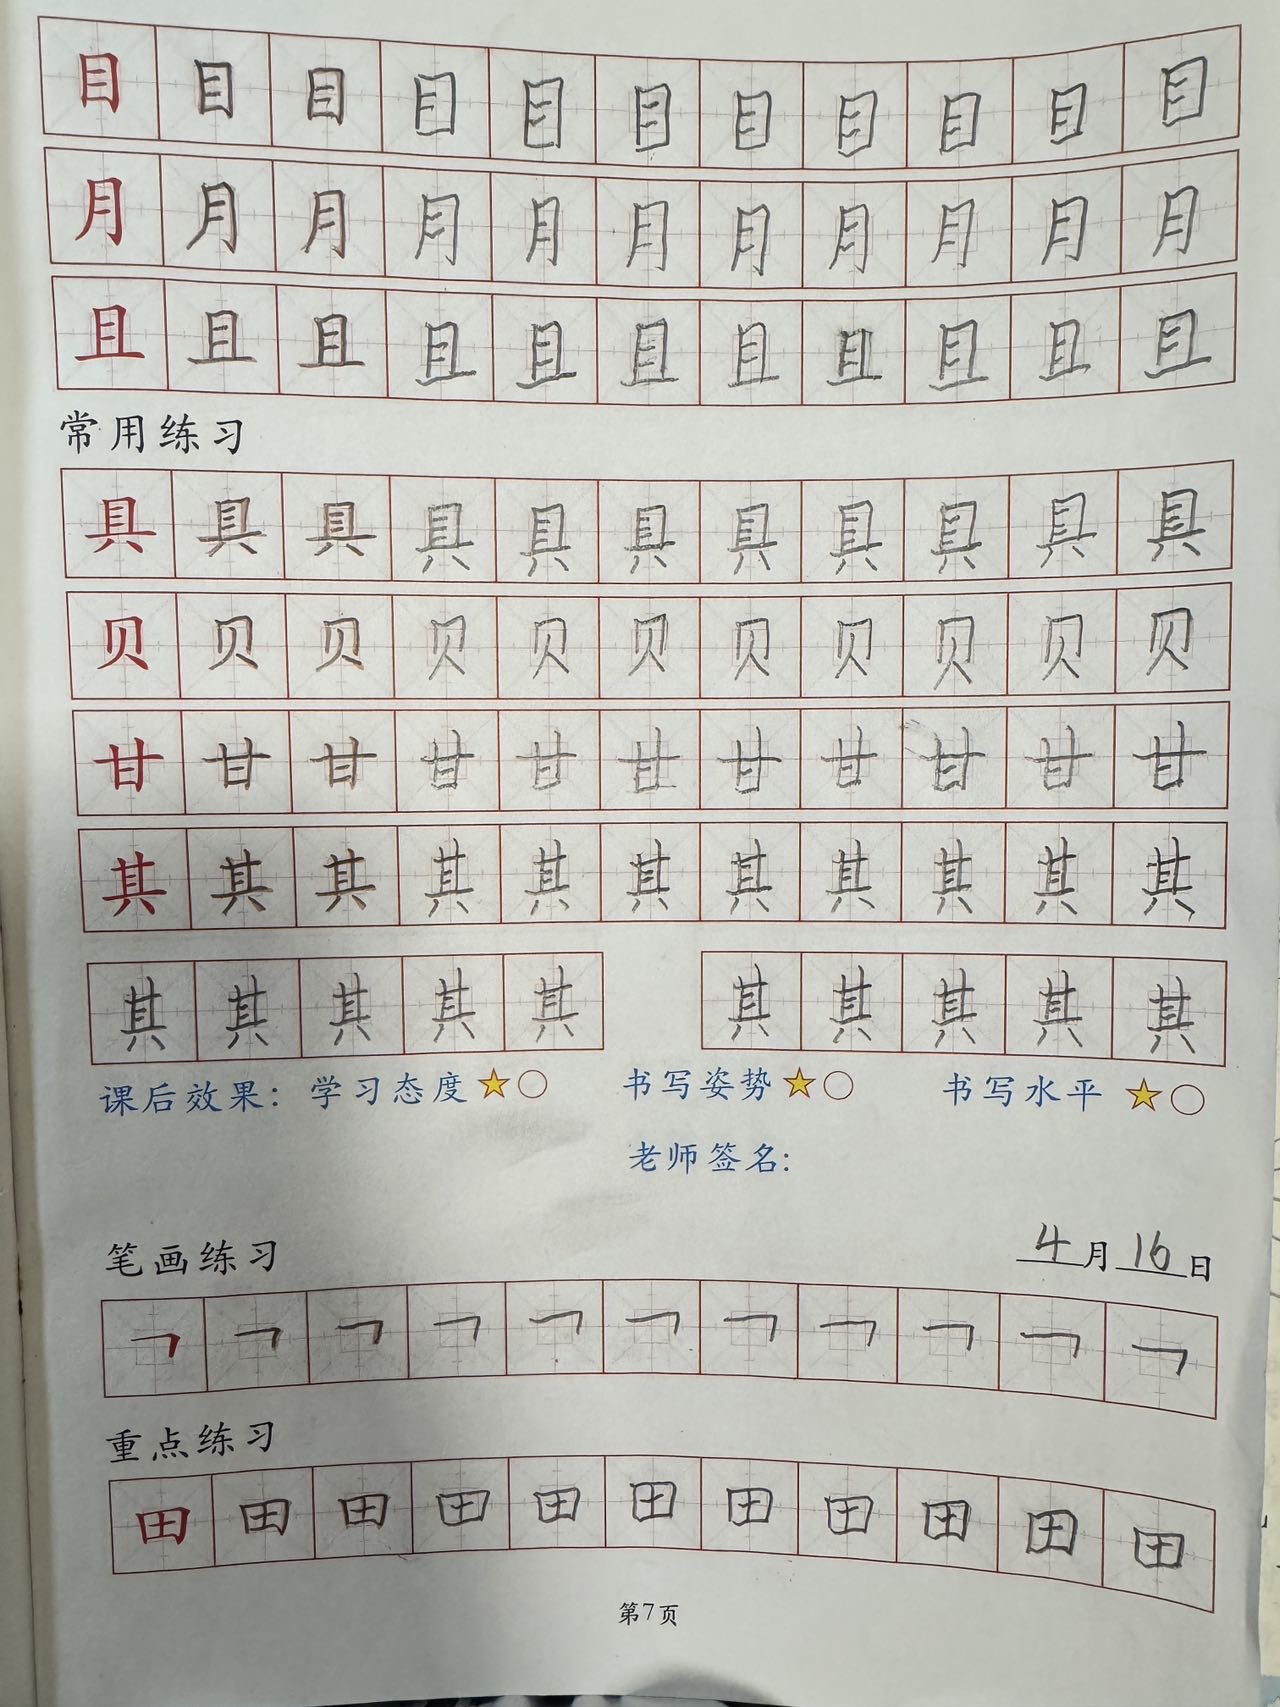 目 目 目 目 目 目 目 目 目 目 目
月 月 月 月 月 月 月 月 月 月 月
且 且 且 且 且 且 且 且 且 且 且
常用练习
具 具 具 具 具 具 具 具 具 具 具
贝 贝 贝 贝 贝 贝 贝 贝 贝 贝 贝
甘 甘 甘 甘 甘 甘 甘 甘 甘 甘 甘
其 其 其 其 其 其 其 其 其 其 其
其 其 其 其 其 其 其 其 其 其
课后效果：学习态度★○ 书写姿势★○ 书写水平★○
老师签名:
笔画练习 4月16日
㇕ ㇕ ㇕ ㇕ ㇕ ㇕ ㇕ ㇕ ㇕ ㇕ ㇕
重点练习
田 田 田 田 田 田 田 田 田 田 田
第7页